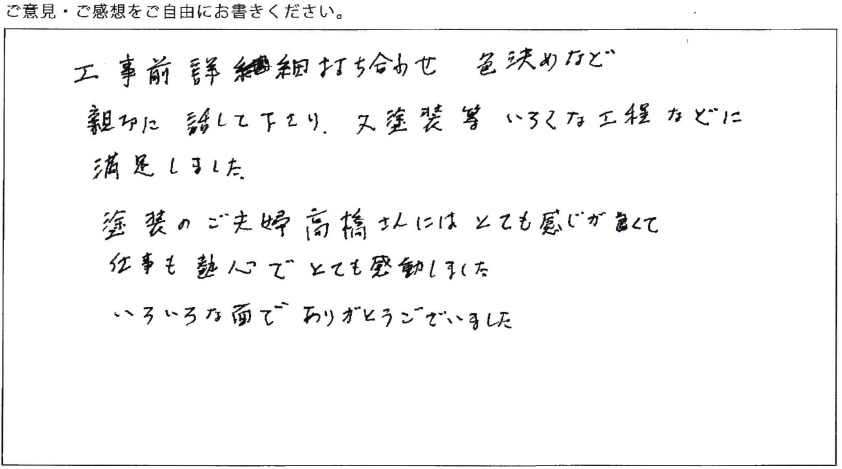 ご意見・ご感想をご自由にお書きください。
工事前詳細打ち合わせ 色決めなど
親切に 話して下さり、又塗装等 いろ〱な工程などに
満足しました。
塗装のご夫婦高橋さんにはとても感じが良くて
仕事も熱心でとても感動しました
いろいろな面でありがとうございました